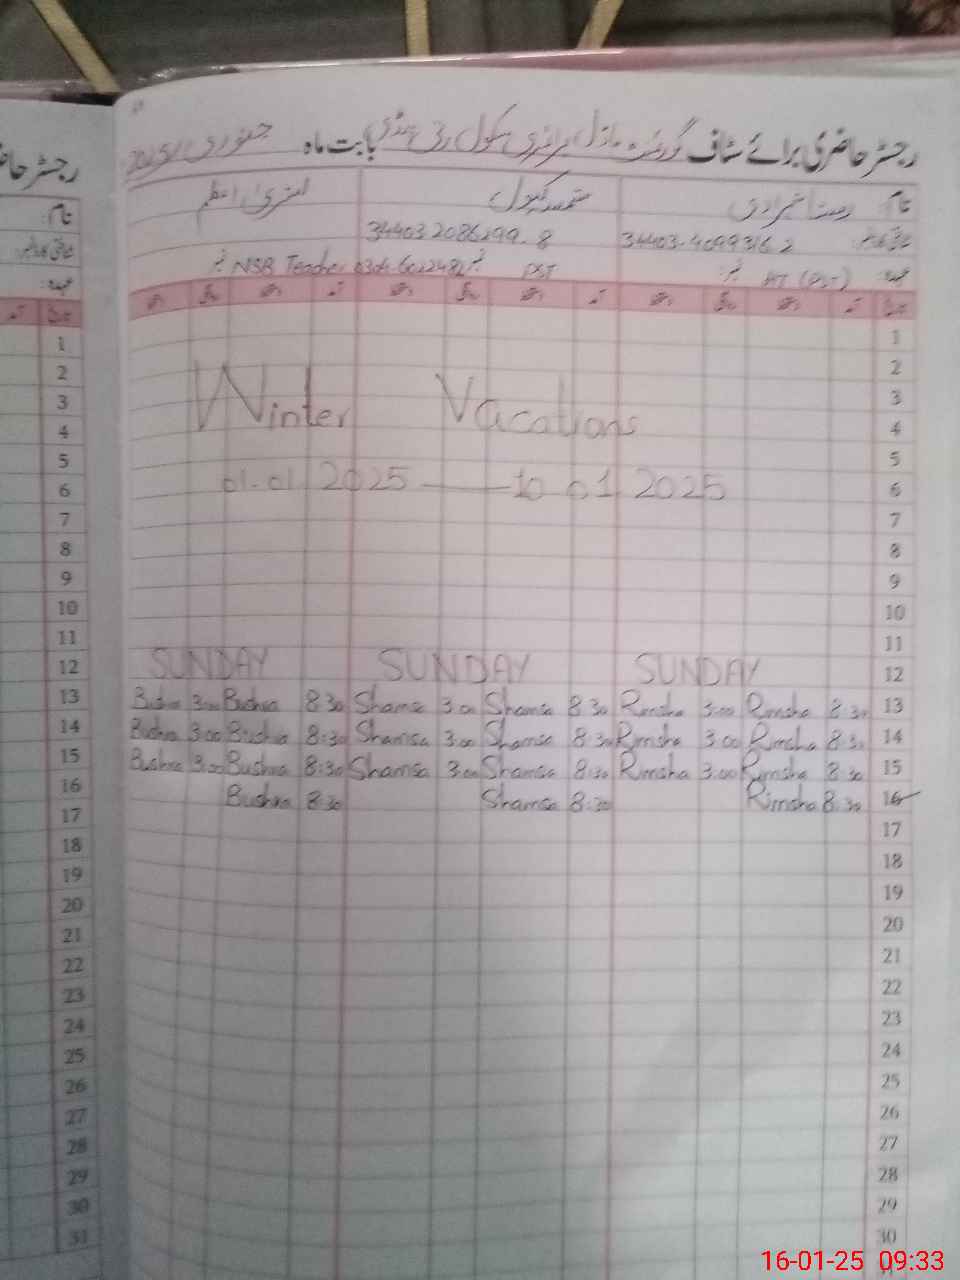 رجسٹر حاضری برائے سٹاف گورنمنٹ ماڈل پرائمری سکول بابت ماہ جنوری 2025
نام
34403 2086299. 8 34403-4099316 2
NSB Teacher PST HT (PST) عہدہ:
تاریخ
1
2
3
Winter Vacations 4
5
01-01 2025 — 10 01 2025 6
7
8
9
10
11
SUNDAY SUNDAY SUNDAY 12
Bushra 3:00 Bushra 8:30 Shamsa 3:00 Shamsa 8:30 Rimsha 3:00 Rimsha 8:30 13
Bushra 3:00 Bushra 8:30 Shamsa 3:00 Shamsa 8:30 Rimsha 3:00 Rimsha 8:30 14
Bushra 3:00 Bushra 8:30 Shamsa 3:00 Shamsa 8:30 Rimsha 3:00 Rimsha 8:30 15
Bushra 8:30 Shamsa 8:30 Rimsha 8:30 16
17
18
19
20
21
22
23
24
25
26
27
28
29
30
رجسٹر
نام:
عہدہ:
تاریخ
1
2
3
4
5
6
7
8
9
10
11
12
13
14
15
16
17
18
19
20
21
22
23
24
25
26
27
28
29
30
31
16-01-25 09:33